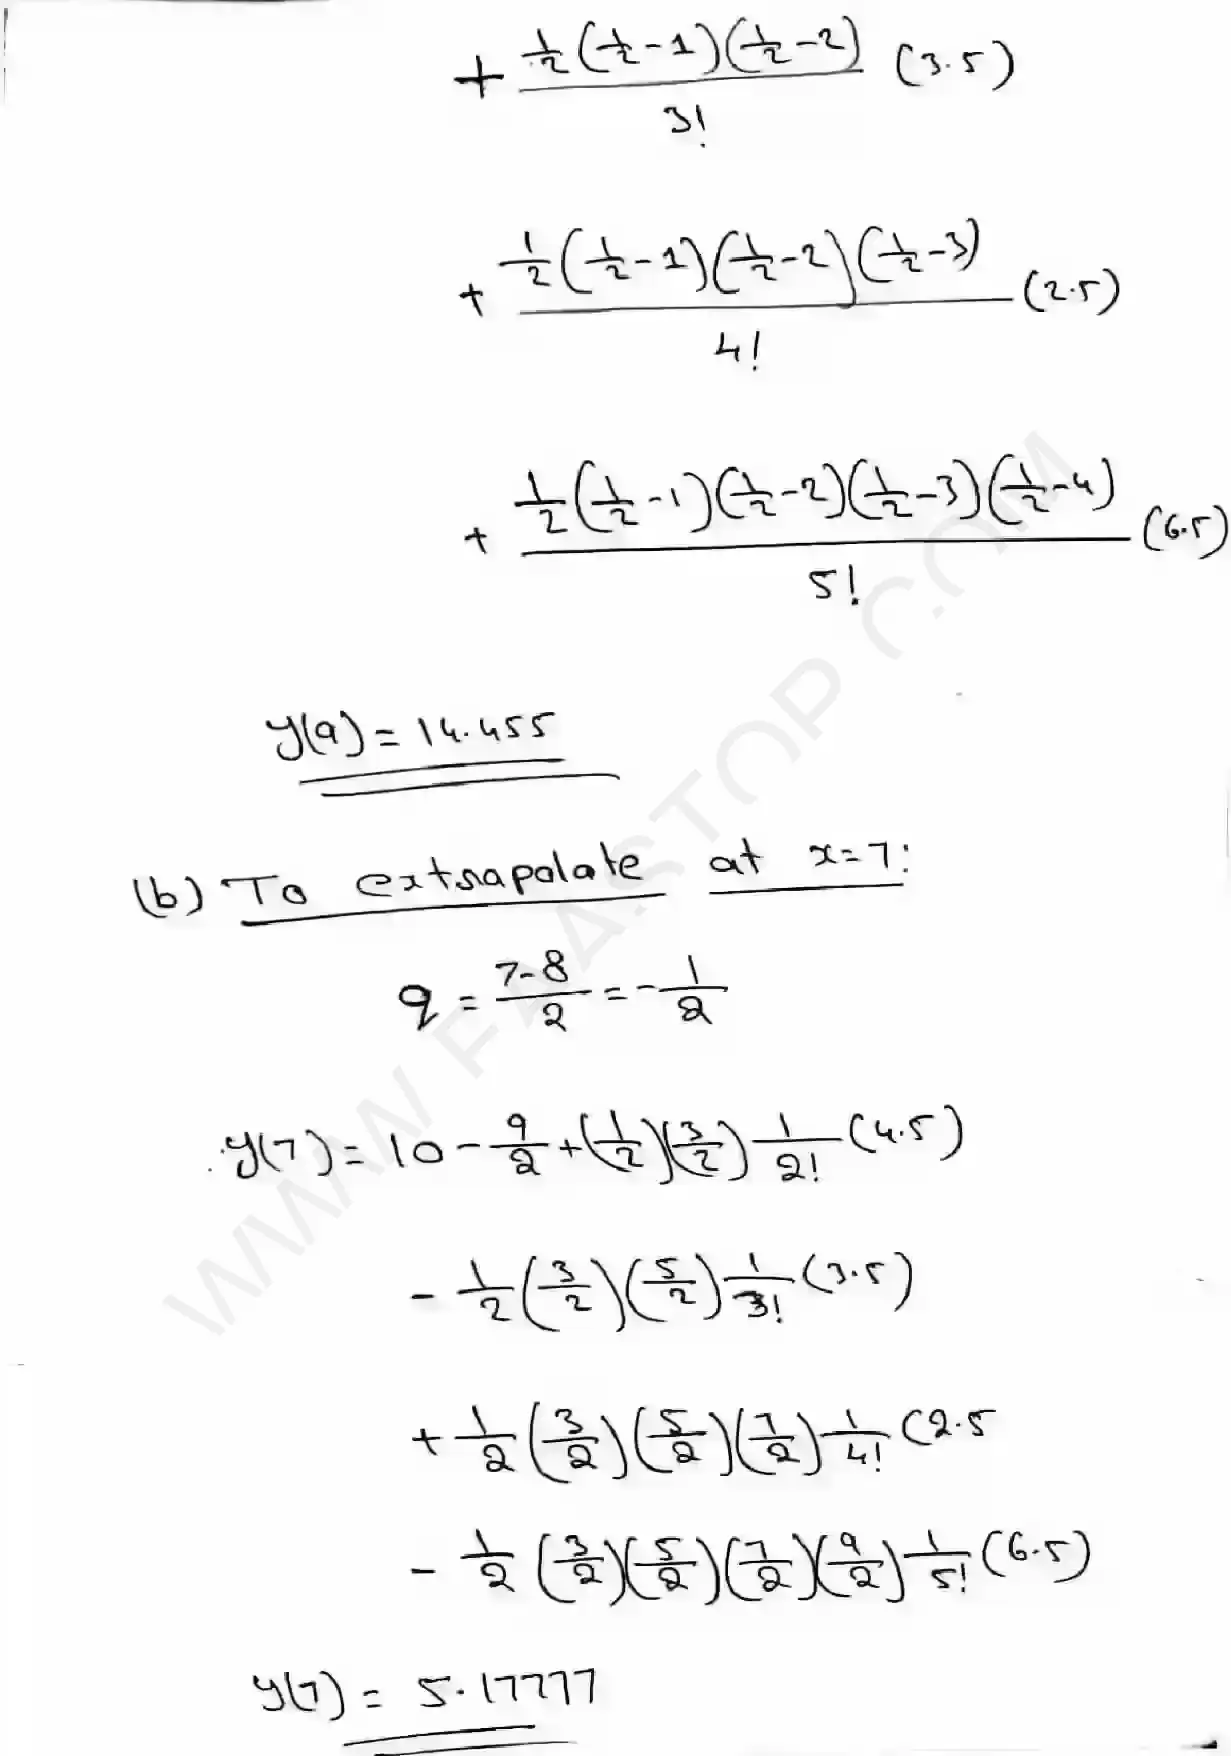 + ½(½-1)(½-2)/3! (3.5)
+ ½(½-1)(½-2)(½-3)/4! (2.5)
+ ½(½-1)(½-2)(½-3)(½-4)/5! (6.5)
y(9) = 14.455
(b) To extrapolate at x=7:
q = 7-8/2 = -1/2
y(7) = 10 - 9/2 + (1/2)(3/2) 1/2! (4.5)
- 1/2 (3/2)(5/2) 1/3! (3.5)
+ 1/2 (3/2)(5/2)(7/2) 1/4! (2.5
- 1/2 (3/2)(5/2)(7/2)(9/2) 1/5! (6.5)
y(7) = 5.17777
WWW FAASTOP.COM